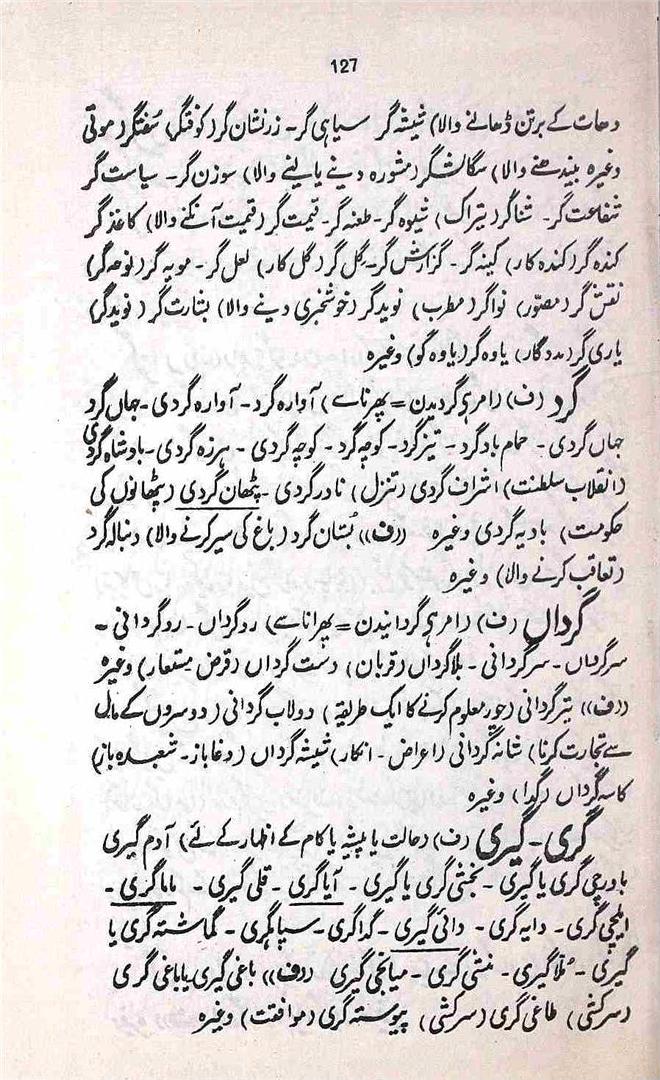 127
دھات کے برتن ڈھالنے والا) شیشہ گر سیاہی گر۔ زرنشان گر (کوفتگر) سُفتگر (موتی
وغیرہ بیندھنے والا) سگالشگر (مشورہ دینے یا لینے والا) سوزن گر۔ سیاست گر
شفاعت گر۔ ثناگر (تیراک) شیوہ گر۔ طعنہ گر۔ قیمت گر (قیمت آنکنے والا) کاغذ گر
کندہ گر (کندہ کار) کینہ گر۔ گزارش گر۔ گِل گر (گل کار) لعل گر۔ مویہ گر (نوحہ گر)
نقش گر (مصوّر) نواگر (مطرب) نوید گر (خوشخبری دینے والا) بشارت گر (نوید گر)
یاری گر (مددگار) یاوہ گر (یاوہ گو) وغیرہ
گرد (ف) (امر ہے گردیدن = پھرنا سے) آوارہ گرد۔ آوارہ گردی۔ جہاں گرد
جہاں گردی۔ حمام بادگرد۔ تیز گرد۔ کوچہ گرد۔ کوچہ گردی۔ ہرزہ گردی۔ بادشاہ گردی
(انقلاب سلطنت) اشراف گردی (تنزل) نادر گردی۔ پٹھان گردی (پٹھانوں کی
حکومت) بادیہ گردی وغیرہ ((ف)) بُستان گرد (باغ کی سیر کرنے والا) دنبالہ گرد
(تعاقب کرنے والا) وغیرہ
گرداں (ف) (امر ہے گردانیدن = پھرانا سے) روگرداں۔ روگردانی۔
سرگرداں۔ سرگردانی۔ بلاگرداں (قربان) دست گرداں (قرض مستعار) وغیرہ
((ف)) تیر گردانی (چور معلوم کرنے کا ایک طریقہ) دولاب گردانی (دوسروں کے مال
سے تجارت کرنا) شانہ گردانی (اعراض۔ انکار) شیشہ گرداں (دغاباز۔ شعبدہ باز)
کاسہ گرداں (گدا) وغیرہ
گری۔ گیری (ف) (حالت یا پیشہ یا کام کے اظہار کے لئے) آدم گیری
باورچی گری یا گیری۔ بخشی گری یا گیری۔ آیا گری۔ قلی گیری۔ ماما گری۔
ایلچی گری۔ دایہ گری۔ دائی گیری۔ گداگری۔ سپاہگری۔ گماشتہ گری یا
گیری۔ مُلّا گیری۔ منشی گری۔ میانجی گیری ((ف)) باغی گیری یا باغی گری
(سرکشی) طاغی گری (سرکشی) پیوستہ گری (موافقت) وغیرہ